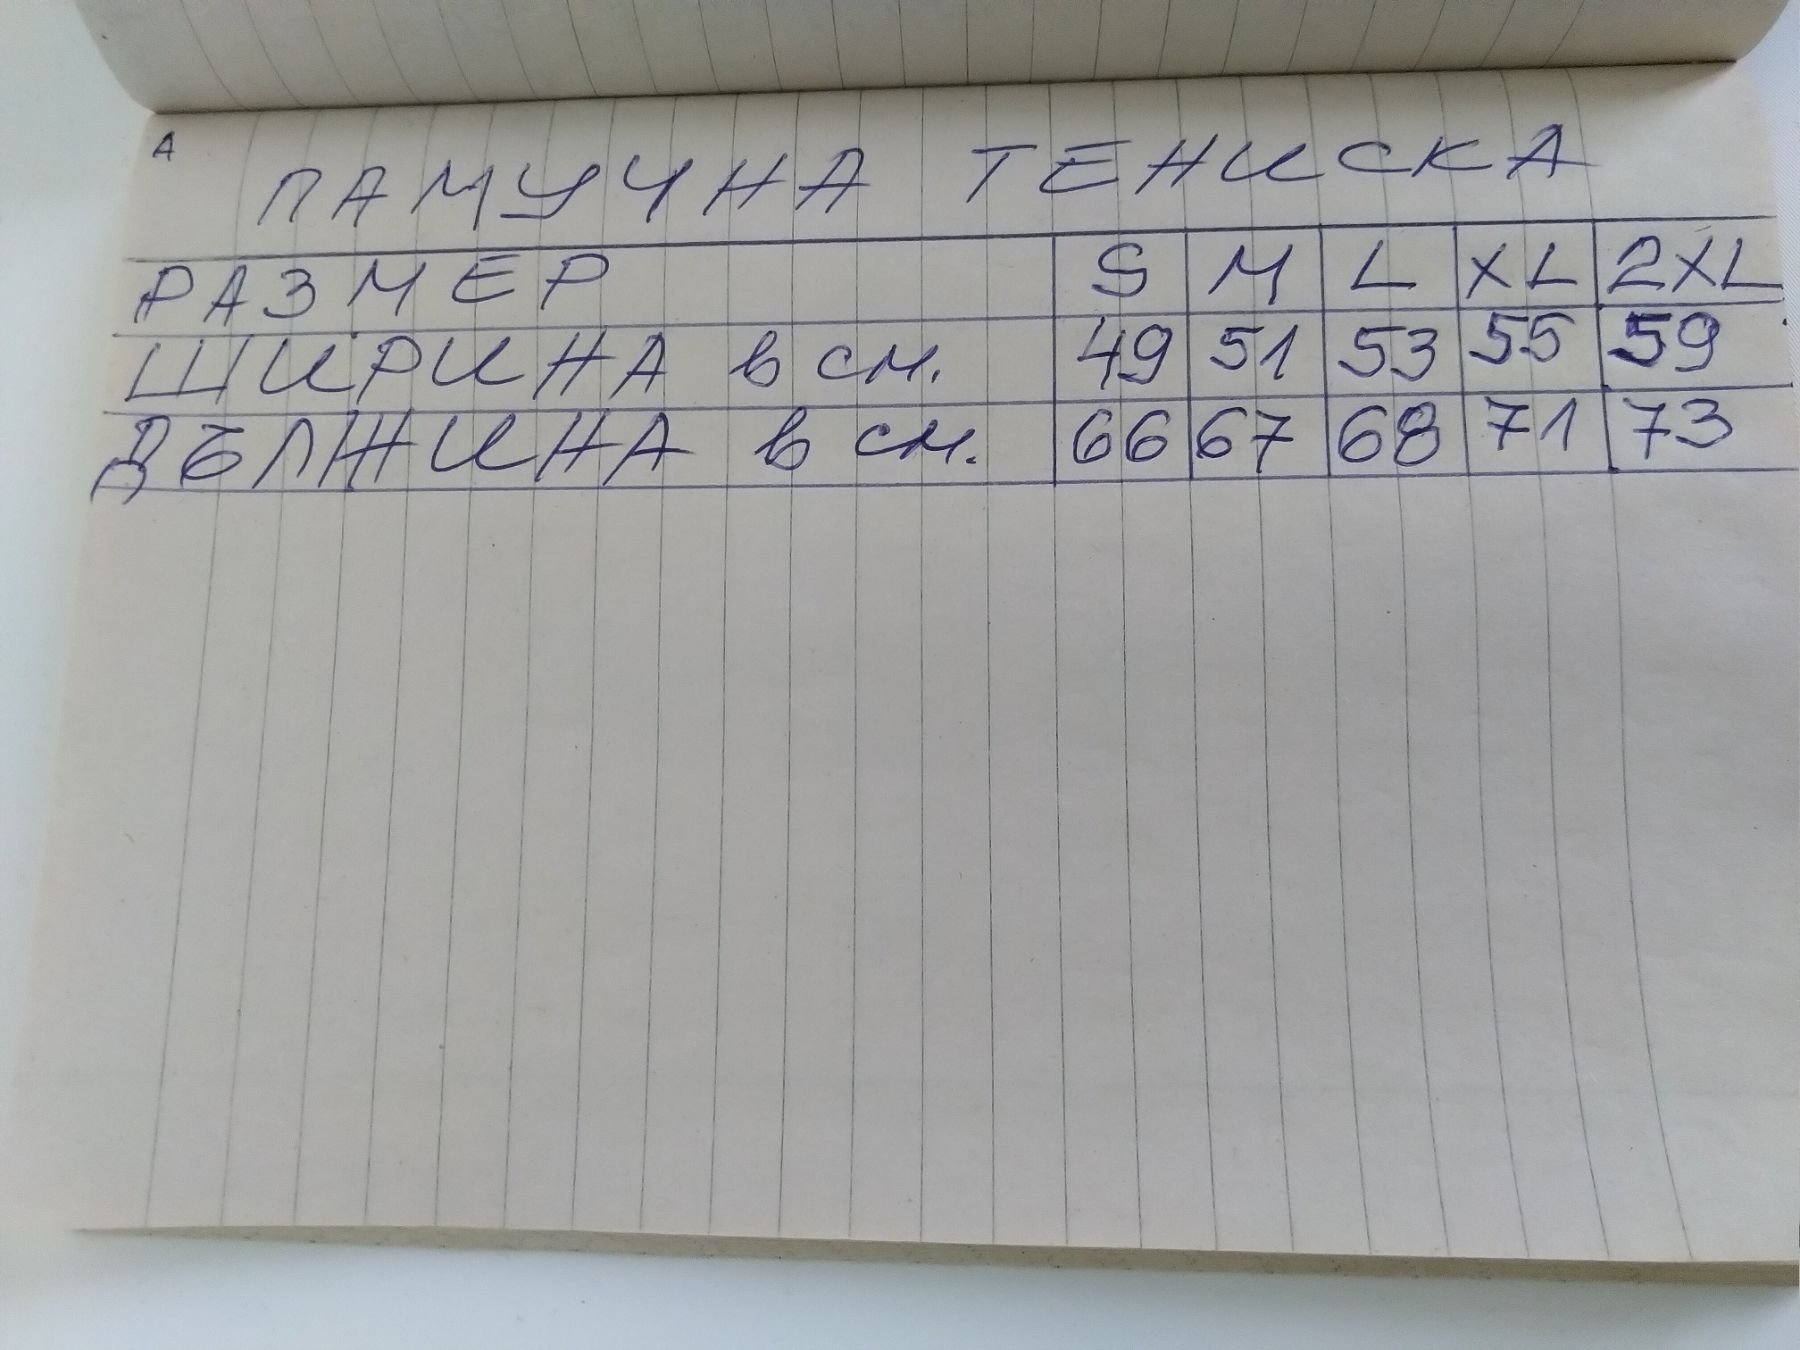 А
ПАМУЧНА ТЕНИСКА
РАЗМЕР S M L XL 2XL
ШИРИНА в см. 49 51 53 55 59
ДЪЛЖИНА в см. 66 67 68 71 73